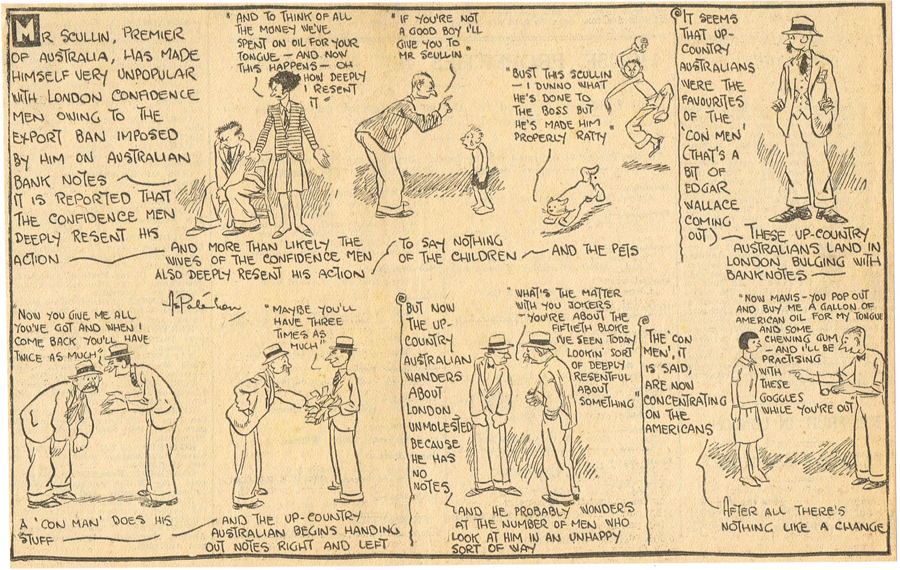 MR SCULLIN, PREMIER
OF AUSTRALIA, HAS MADE
HIMSELF VERY UNPOPULAR
WITH LONDON CONFIDENCE
MEN OWING TO THE
EXPORT BAN IMPOSED
BY HIM ON AUSTRALIAN
BANK NOTES —
IT IS REPORTED THAT
THE CONFIDENCE MEN
DEEPLY RESENT HIS
ACTION —
"AND TO THINK OF ALL
THE MONEY WE'VE
SPENT ON OIL FOR YOUR
TONGUE — AND NOW
THIS HAPPENS — OH
HOW DEEPLY
I RESENT
IT"
— AND MORE THAN LIKELY THE
WIVES OF THE CONFIDENCE MEN
ALSO DEEPLY RESENT HIS ACTION
"IF YOU'RE NOT
A GOOD BOY I'LL
GIVE YOU TO
MR SCULLIN"
TO SAY NOTHING
OF THE CHILDREN —
"BUST THIS SCULLIN
— I DUNNO WHAT
HE'S DONE TO
THE BOSS BUT
HE'S MADE HIM
PROPERLY RATTY"
— AND THE PETS
IT SEEMS
THAT UP-
COUNTRY
AUSTRALIANS
WERE THE
FAVOURITES
OF THE
'CON MEN'
(THAT'S A
BIT OF
EDGAR
WALLACE
COMING
OUT) — THESE UP-COUNTRY
AUSTRALIANS LAND IN
LONDON BULGING WITH
BANKNOTES —
"NOW YOU GIVE ME ALL
YOU'VE GOT AND WHEN I
COME BACK YOU'LL HAVE
TWICE AS MUCH"
A 'CON MAN' DOES HIS
STUFF —
"MAYBE YOU'LL
HAVE THREE
TIMES AS
MUCH"
— AND THE UP-COUNTRY
AUSTRALIAN BEGINS HANDING
OUT NOTES RIGHT AND LEFT
BUT NOW
THE UP-
COUNTRY
AUSTRALIAN
WANDERS
ABOUT
LONDON
UNMOLESTED
BECAUSE
HE HAS
NO
NOTES
"WHAT'S THE MATTER
WITH YOU JOKERS
— YOU'RE ABOUT THE
FIFTIETH BLOKE
I'VE SEEN TODAY
LOOKIN' SORT
OF DEEPLY
RESENTFUL
ABOUT
SOMETHING"
— AND HE PROBABLY WONDERS
AT THE NUMBER OF MEN WHO
LOOK AT HIM IN AN UNHAPPY
SORT OF WAY
THE 'CON
MEN', IT
IS SAID,
ARE NOW
CONCENTRATING
ON THE
AMERICANS
"NOW MAVIS — YOU POP OUT
AND BUY ME A GALLON OF
AMERICAN OIL FOR MY TONGUE
AND SOME
CHEWING GUM
— AND I'LL BE
PRACTISING
WITH
THESE
GOGGLES
WHILE YOU'RE OUT
AFTER ALL THERE'S
NOTHING LIKE A CHANGE